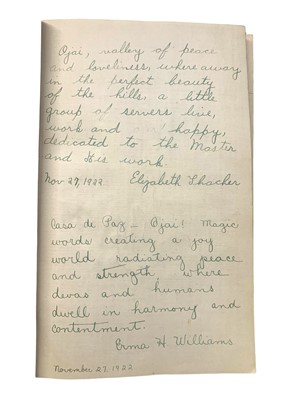 Ojai, valley of peace
and loveliness, where away
in the perfect beauty
of the hills, a little
group of servers live,
work and happy,
dedicated to the Master
and His work.
Nov 27, 1922 Elizabeth Thacher
Casa de Paz — Ojai! Magic
words creating a joy
world radiating peace
and strength, where
devas and humans
dwell in harmony and
contentment.
Erma H. Williams
November 27, 1922